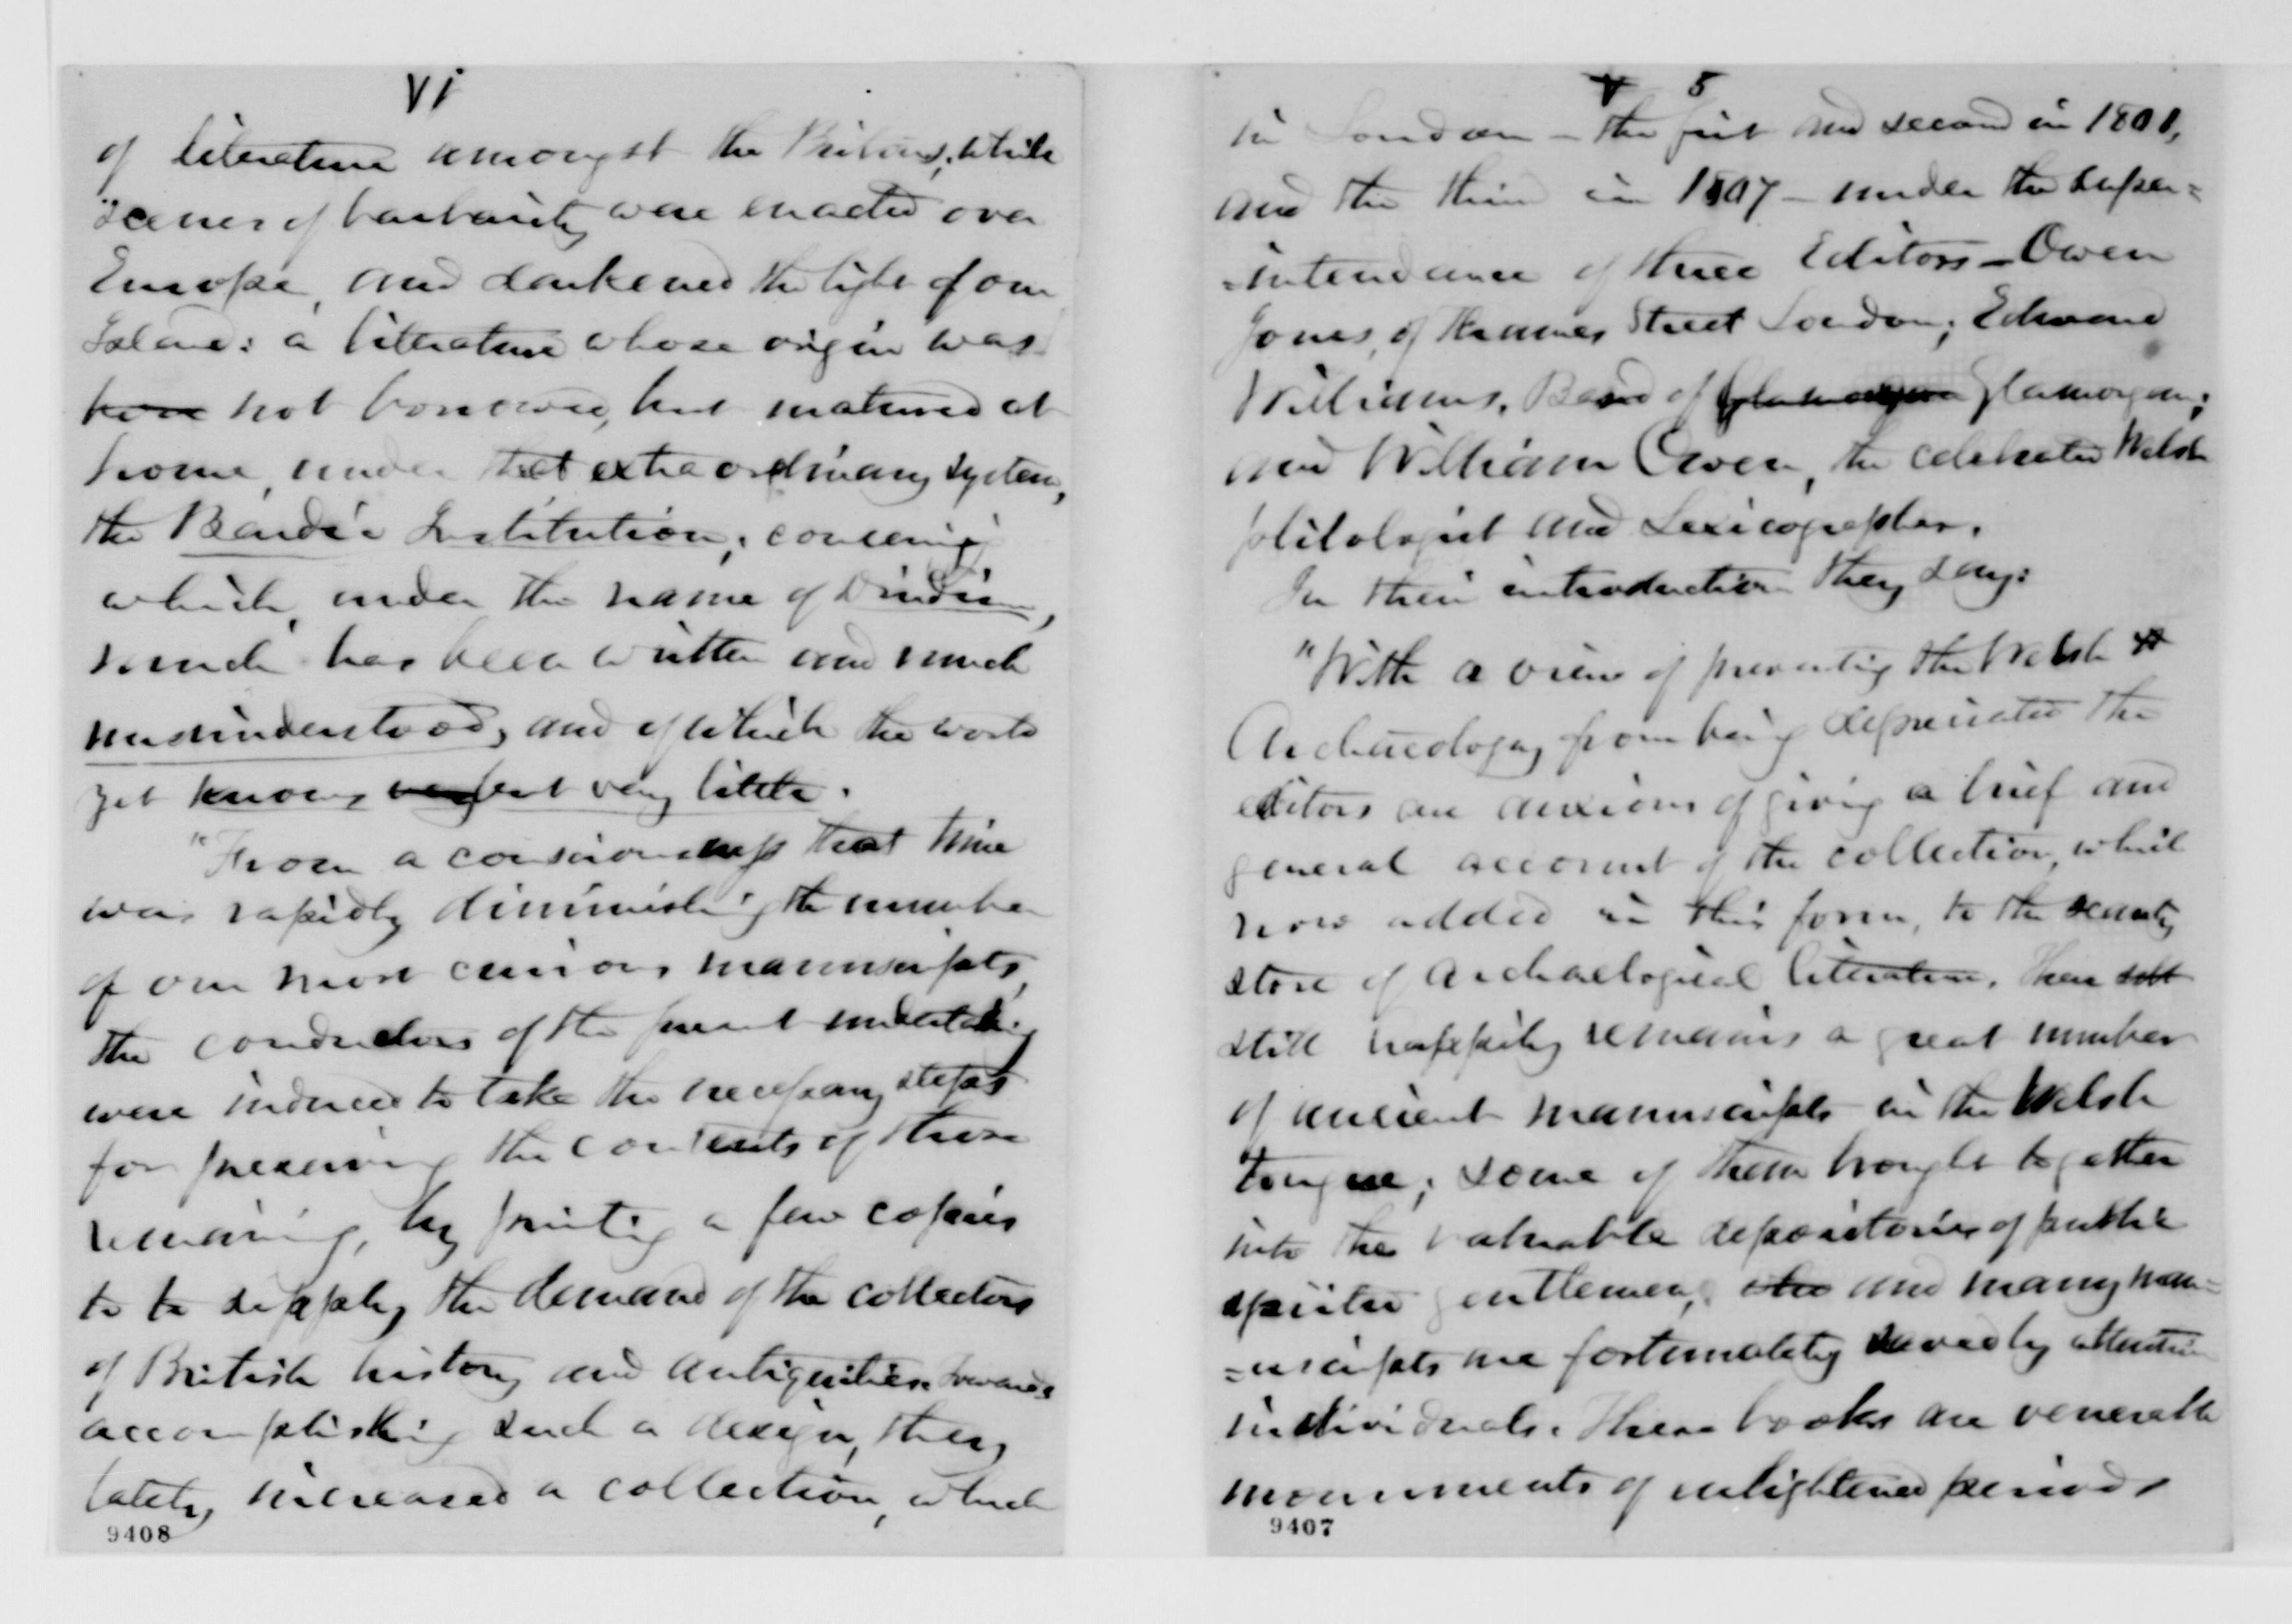 vi
of literature amongst the Britons, while
scenes of barbarity were enacted over
Europe, and darkened the light of our
Island: a literature whose origin was
not borrowed, but matured at
home, under that extraordinary system,
the Bardic Institution; concerning
which, under the name of Druidism,
much has been written and much
misunderstood, and of which the world
yet knows but very little.
"From a consciousness that time
was rapidly diminishing the number
of our most curious manuscripts,
the conductors of the present undertaking
were induced to take the necessary steps
for preserving the contents of those
remaining, by printing a few copies
to to supply the demand of the collectors
of British history and antiquities. Towards
accomplishing such a design, they
lately increased a collection, which
9408
v 5
in London - the first and second in 1801,
and the third in 1807 - under the super=
=intendance of three Editors - Owen
Jones, of Thames Street London; Edward
Williams, Bard of Glamorgan Glamorgan;
and William Owen, the celebrated Welsh
philologist and Lexicographer.
In their introduction they say:
"With a view of preventing the Welsh
Archaeology from being depreciated the
editors are anxious of giving a brief and
general account of the collection, which
now added in this form, to the scanty
store of Archaelogical literature. There
still happily remains a great number
of ancient manuscripts in the Welsh
tongue; some of them brought together
into the valuable depositories of public
spirited gentlemen, and many man=
=uscripts are fortunately saved by attentive
individuals. These books are venerable
monuments of enlightened periods
9407